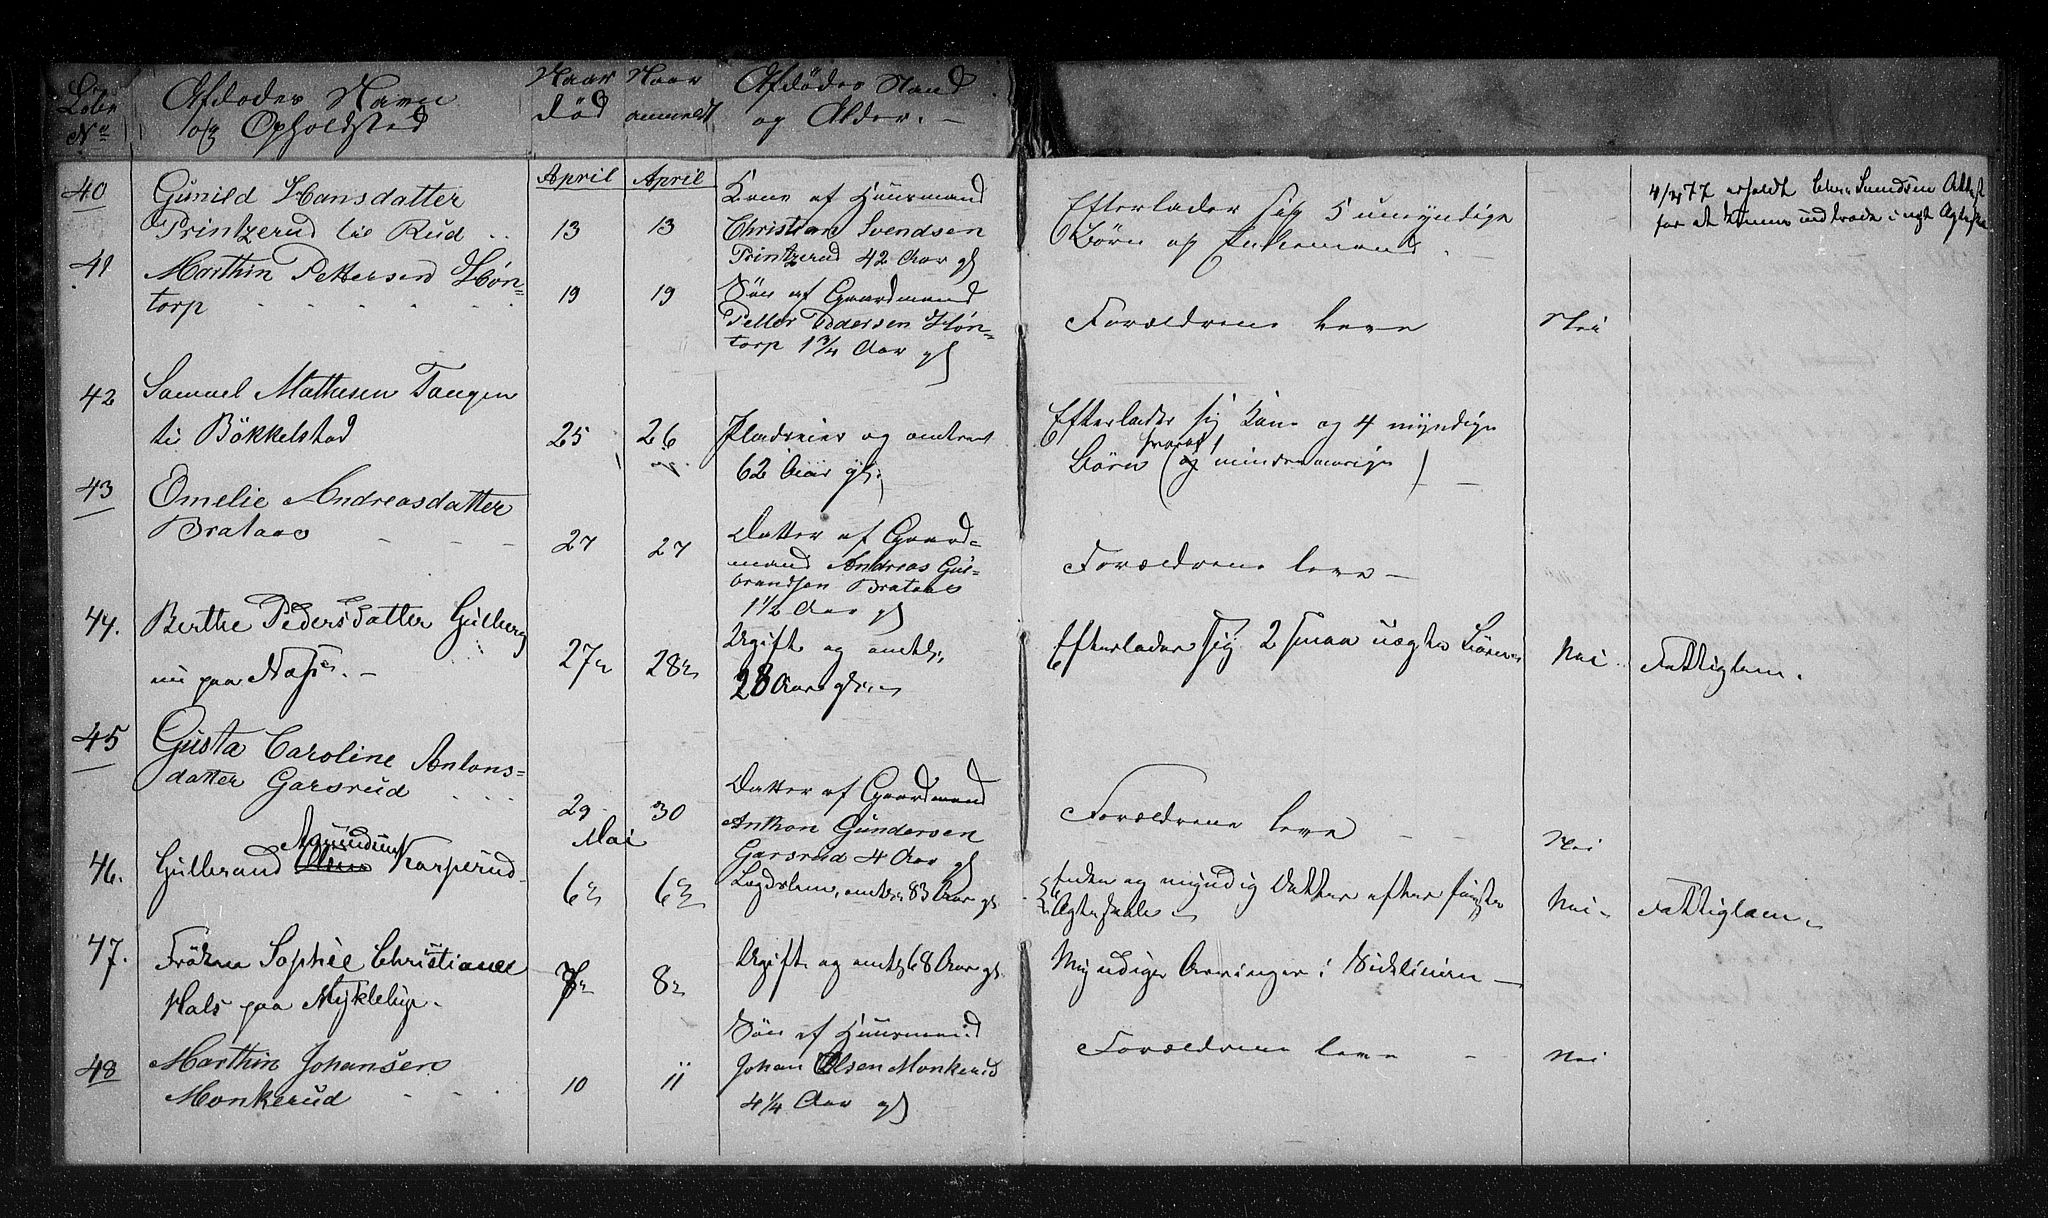 Løbe
No
Afdødes Navn
og Opholdsted
Naar
død
Naar
anmeldt
Afdødes Stand
og Alder. —
April
April
40
Gunild Hansdatter
Printzerud lie Rud
13
13
Kone af Huusmand
Christian Svendsen
Printzerud 42 Aar gl
Efterlader sig 5 umyndige
Børn og Enkemand.
4/4 77 erholdt Chr. Svendsen Attest
for at kunne indtræde i nyt Ægteskab
41
Marthin Pettersen Høn-
torp
19
19
Søn af Gaardmand
Petter Pedersen Høn-
torp 1 3/4 Aar gl
Forældrene leve
Nei
42
Samuel Mathisen Tangen
ti Bökkelstad
25
26
Pladseier og omtrent
62 Aar gl.
Efterlader sig Kone og 4 myndige
Børn (hvoraf mindreaarige)
43
Omelie Andreasdatter
Brataas — — —
27
27
Datter af Gaard-
mand Andreas Gul-
brandsen Brataas
1 1/2 Aar gl
Forældrene leve —
44.
Berthe Pedersdatter Gulberg
nu paa Næss. —
27de
28de
Ugift og omtr.
28 Aar gl.
Efterlader sig 2 smaa uægte Børn
Nei
Fattiglem.
45
Gusta Caroline Antons-
datter Garsrud
29
30
Datter af Gaardmand
Anthon Gundersen
Garsrud 4 Aar gl
Forældrene leve — —
Nei
Mai
46.
Gulbrand Amundsen Karperud
6te
6te
Lægdslem, omtr. 83 Aar gl.
Enke og myndig Datter efter første
Ægteskab —
Nei
Fattiglem
47.
Frøken Sophie Christiane
Hals paa Myklebye.
7de
8de
Ugift og omtr. 68 Aar gl.
Myndige Arvinger i Sidelinien —
48
Marthin Johansen
Monkerud
10
11
Søn af Huusmand
Johan Olsen Monkerud
4 1/4 Aar gl
Forældrene leve —
Nei